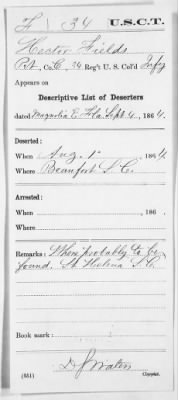 F | 34 | U.S.C.T.
Hector Fields
Pvt., Co. G, 34 Reg't U. S. Col'd Infy
Appears on
Descriptive List of Deserters
dated Magnolia Fla. Sept 4, 1864.
Deserted:
When Aug. 1, 1864.
Where Beaufort S. C.
Arrested:
When , 186 .
Where
Remarks: Where probably to be
found, St. Helena S. C.
Book mark :
(631) Copyist.